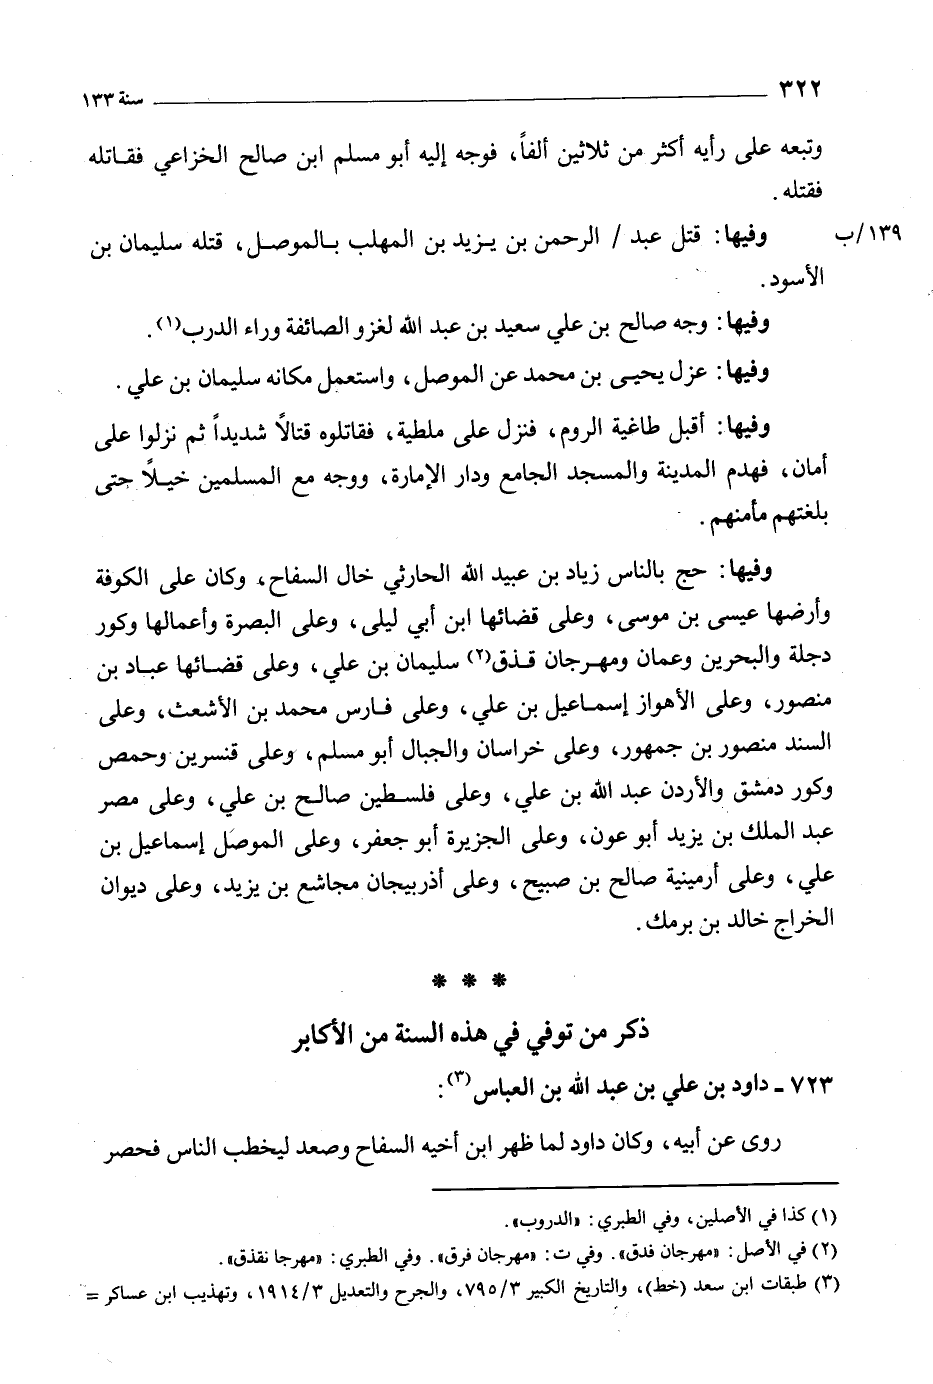 ٣٢٢ ــــــ سنة ١٣٣
وتبعه على رأيه أكثر من ثلاثين ألفاً، فوجه إليه أبو مسلم ابن صالح الخزاعي فقاتله
فقتله.
١٣٩/ب وفيها: قتل عبد / الرحمن بن يزيد بن المهلب بالموصل، قتله سليمان بن
الأسود.
وفيها: وجه صالح بن علي سعيد بن عبد الله لغزو الصائفة وراء الدرب(١).
وفيها: عزل يحيى بن محمد عن الموصل، واستعمل مكانه سليمان بن علي.
وفيها: أقبل طاغية الروم، فنزل على ملطية، فقاتلوه قتالاً شديداً ثم نزلوا على
أمان، فهدم المدينة والمسجد الجامع ودار الإمارة، ووجه مع المسلمين خيلاً حتى
بلغتهم مأمنهم.
وفيها: حج بالناس زياد بن عبيد الله الحارثي خال السفاح، وكان على الكوفة
وأرضها عيسى بن موسى، وعلى قضائها ابن أبي ليلى، وعلى البصرة وأعمالها وكور
دجلة والبحرين وعمان ومهرجان قذق(٢) سليمان بن علي، وعلى قضائها عباد بن
منصور، وعلى الأهواز إسماعيل بن علي، وعلى فارس محمد بن الأشعث، وعلى
السند منصور بن جمهور، وعلى خراسان والجبال أبو مسلم، وعلى قنسرين وحمص
وكور دمشق والأردن عبد الله بن علي، وعلى فلسطين صالح بن علي، وعلى مصر
عبد الملك بن يزيد أبو عون، وعلى الجزيرة أبو جعفر، وعلى الموصل إسماعيل بن
علي، وعلى أرمينية صالح بن صبيح، وعلى أذربيجان مجاشع بن يزيد، وعلى ديوان
الخراج خالد بن برمك.
* * *
ذكر من توفي في هذه السنة من الأكابر
٧٢٣ ـ داود بن علي بن عبد الله بن العباس(٣):
روى عن أبيه، وكان داود لما ظهر ابن أخيه السفاح وصعد ليخطب الناس فحصر
(١) كذا في الأصلين، وفي الطبري: «الدروب».
(٢) في الأصل: «مهرجان فدق». وفي ت: «مهرجان فرق». وفي الطبري: «مهرجا نقذق».
(٣) طبقات ابن سعد (خط)، والتاريخ الكبير ٧٩٥/٣، والجرح والتعديل ١٩١٤/٣، وتهذيب ابن عساكر =